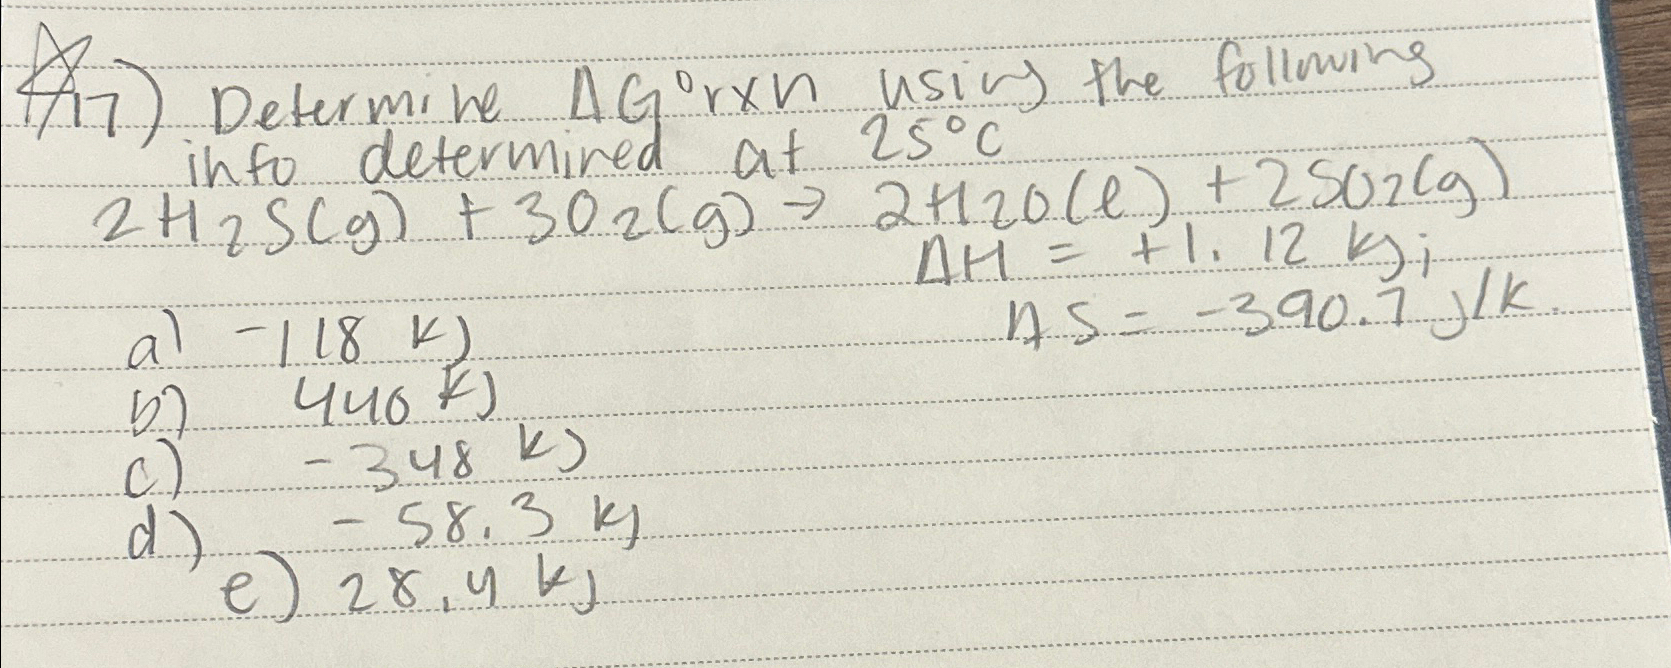 ☆17) Determine ΔG°rxn using the following
info determined at 25°C
2H2S(g) + 3O2(g) → 2H2O(l) + 2SO2(g)
ΔH = +1.12 kJ;
ΔS = -390.7 J/K.
a) -118 kJ
b) 440 kJ
c) -348 kJ
d) -58.3 kJ
e) 28.4 kJ